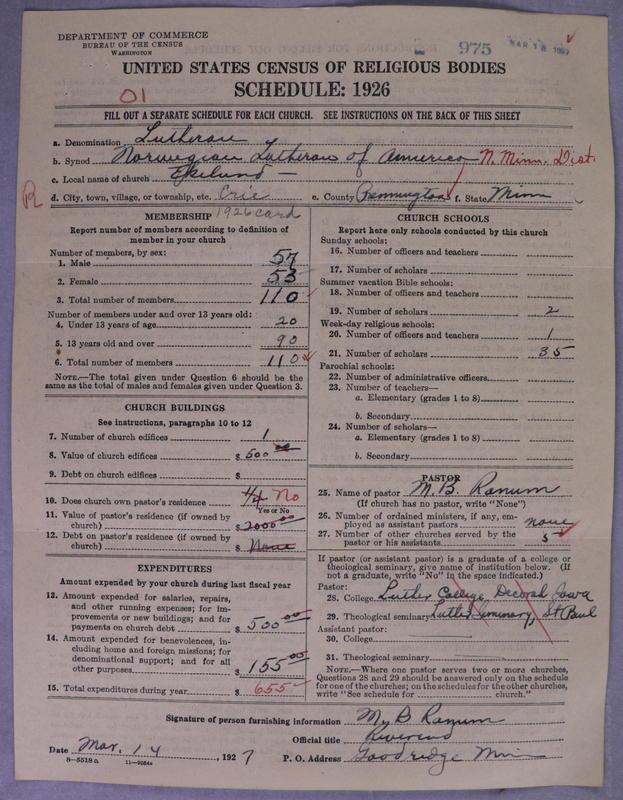 DEPARTMENT OF COMMERCE
BUREAU OF THE CENSUS
WASHINGTON
975
MAR 18 1927
UNITED STATES CENSUS OF RELIGIOUS BODIES
SCHEDULE: 1926
01
FILL OUT A SEPARATE SCHEDULE FOR EACH CHURCH. SEE INSTRUCTIONS ON THE BACK OF THIS SHEET
a. Denomination Lutheran
b. Synod Norwegian Lutheran of America N. Minn. Dist.
c. Local name of church Ekelund
R
d. City, town, village, or township, etc. Erie e. County Pennington f. State Minn
1926 card
MEMBERSHIP
Report number of members according to definition of
member in your church
Number of members, by sex:
1. Male 57
2. Female 53
3. Total number of members 110
Number of members under and over 13 years old:
4. Under 13 years of age 20
5. 13 years old and over 90
6. Total number of members 110
NOTE.—The total given under Question 6 should be the
same as the total of males and females given under Question 3.
CHURCH BUILDINGS
See instructions, paragraphs 10 to 12
7. Number of church edifices 1
8. Value of church edifices $ 500 00
9. Debt on church edifices $
10. Does church own pastor's residence 1/4 No
Yes or No
11. Value of pastor's residence (if owned by
church) $ 2000 00
12. Debt on pastor's residence (if owned by
church) $ None
EXPENDITURES
Amount expended by your church during last fiscal year
13. Amount expended for salaries, repairs,
and other running expenses; for im-
provements or new buildings; and for
payments on church debt $ 500 00
14. Amount expended for benevolences, in-
cluding home and foreign missions; for
denominational support; and for all
other purposes $ 155 00
15. Total expenditures during year $ 655
CHURCH SCHOOLS
Report here only schools conducted by this church
Sunday schools:
16. Number of officers and teachers
17. Number of scholars
Summer vacation Bible schools:
18. Number of officers and teachers
19. Number of scholars 2
Week-day religious schools:
20. Number of officers and teachers 1
21. Number of scholars 35
Parochial schools:
22. Number of administrative officers
23. Number of teachers—
a. Elementary (grades 1 to 8)
b. Secondary
24. Number of scholars—
a. Elementary (grades 1 to 8)
b. Secondary
PASTOR
25. Name of pastor M. B. Ranum
(If church has no pastor, write "None")
26. Number of ordained ministers, if any, em-
ployed as assistant pastors none
27. Number of other churches served by the
pastor or his assistants 5
If pastor (or assistant pastor) is a graduate of a college or
theological seminary, give name of institution below. (If
not a graduate, write "No" in the space indicated.)
Pastor:
28. College Luther College, Decorah, Iowa
29. Theological seminary Luther Seminary, St Paul
Assistant pastor:
30. College
31. Theological seminary
NOTE.—Where one pastor serves two or more churches,
Questions 28 and 29 should be answered only on the schedule
for one of the churches; on the schedules for the other churches,
write "See schedule for church."
Signature of person furnishing information M B Ranum
Official title Reverend
Date Mar. 14, 1927 P. O. Address Goodridge Minn
8-5518a 11-9054a